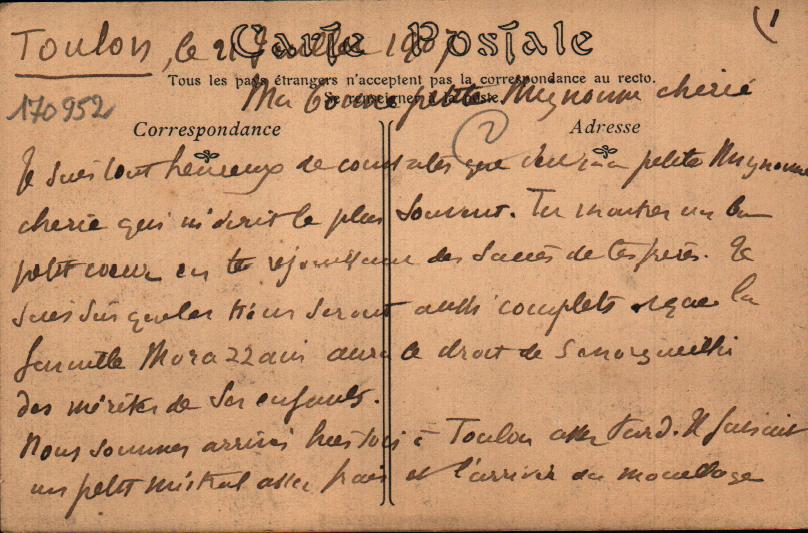 1
Carte Postale
Toulon, le 21 Juillet 190
Tous les pays étrangers n'acceptent pas la correspondance au recto.
Se renseigner à la Poste.
170952
Ma bonne petite Mignonne chérie
2
Correspondance
Adresse
Je suis tout heureux de constater que c'est ma petite Mignonne
cherie qui m'écrit le plus souvent. Tu montres un bon
petit coeur en te rejouissant des succès de tes frères. Je
suis sûr que les tiens seront aussi complets et que la
famille Morazzani aura le droit de s'enorgueillir
des mérites de ses enfants.
Nous sommes arrivés hier soir à Toulon assez tard. Il faisait
un petit mistral assez frais et l'arrivée au mouillage